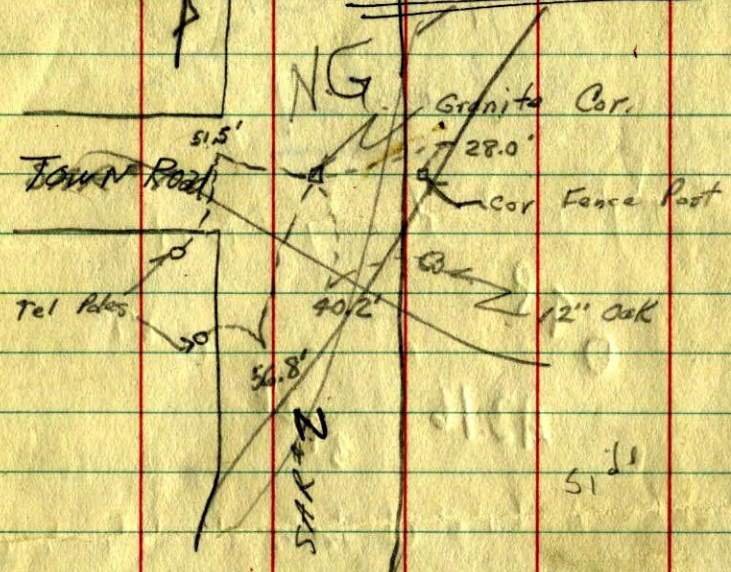 N.G.
Granite Cor.
51.5'
28.0'
Town Road
Cor Fence Post
Tel Poles
40.2'
12" Oak
56.8'
SAR#2